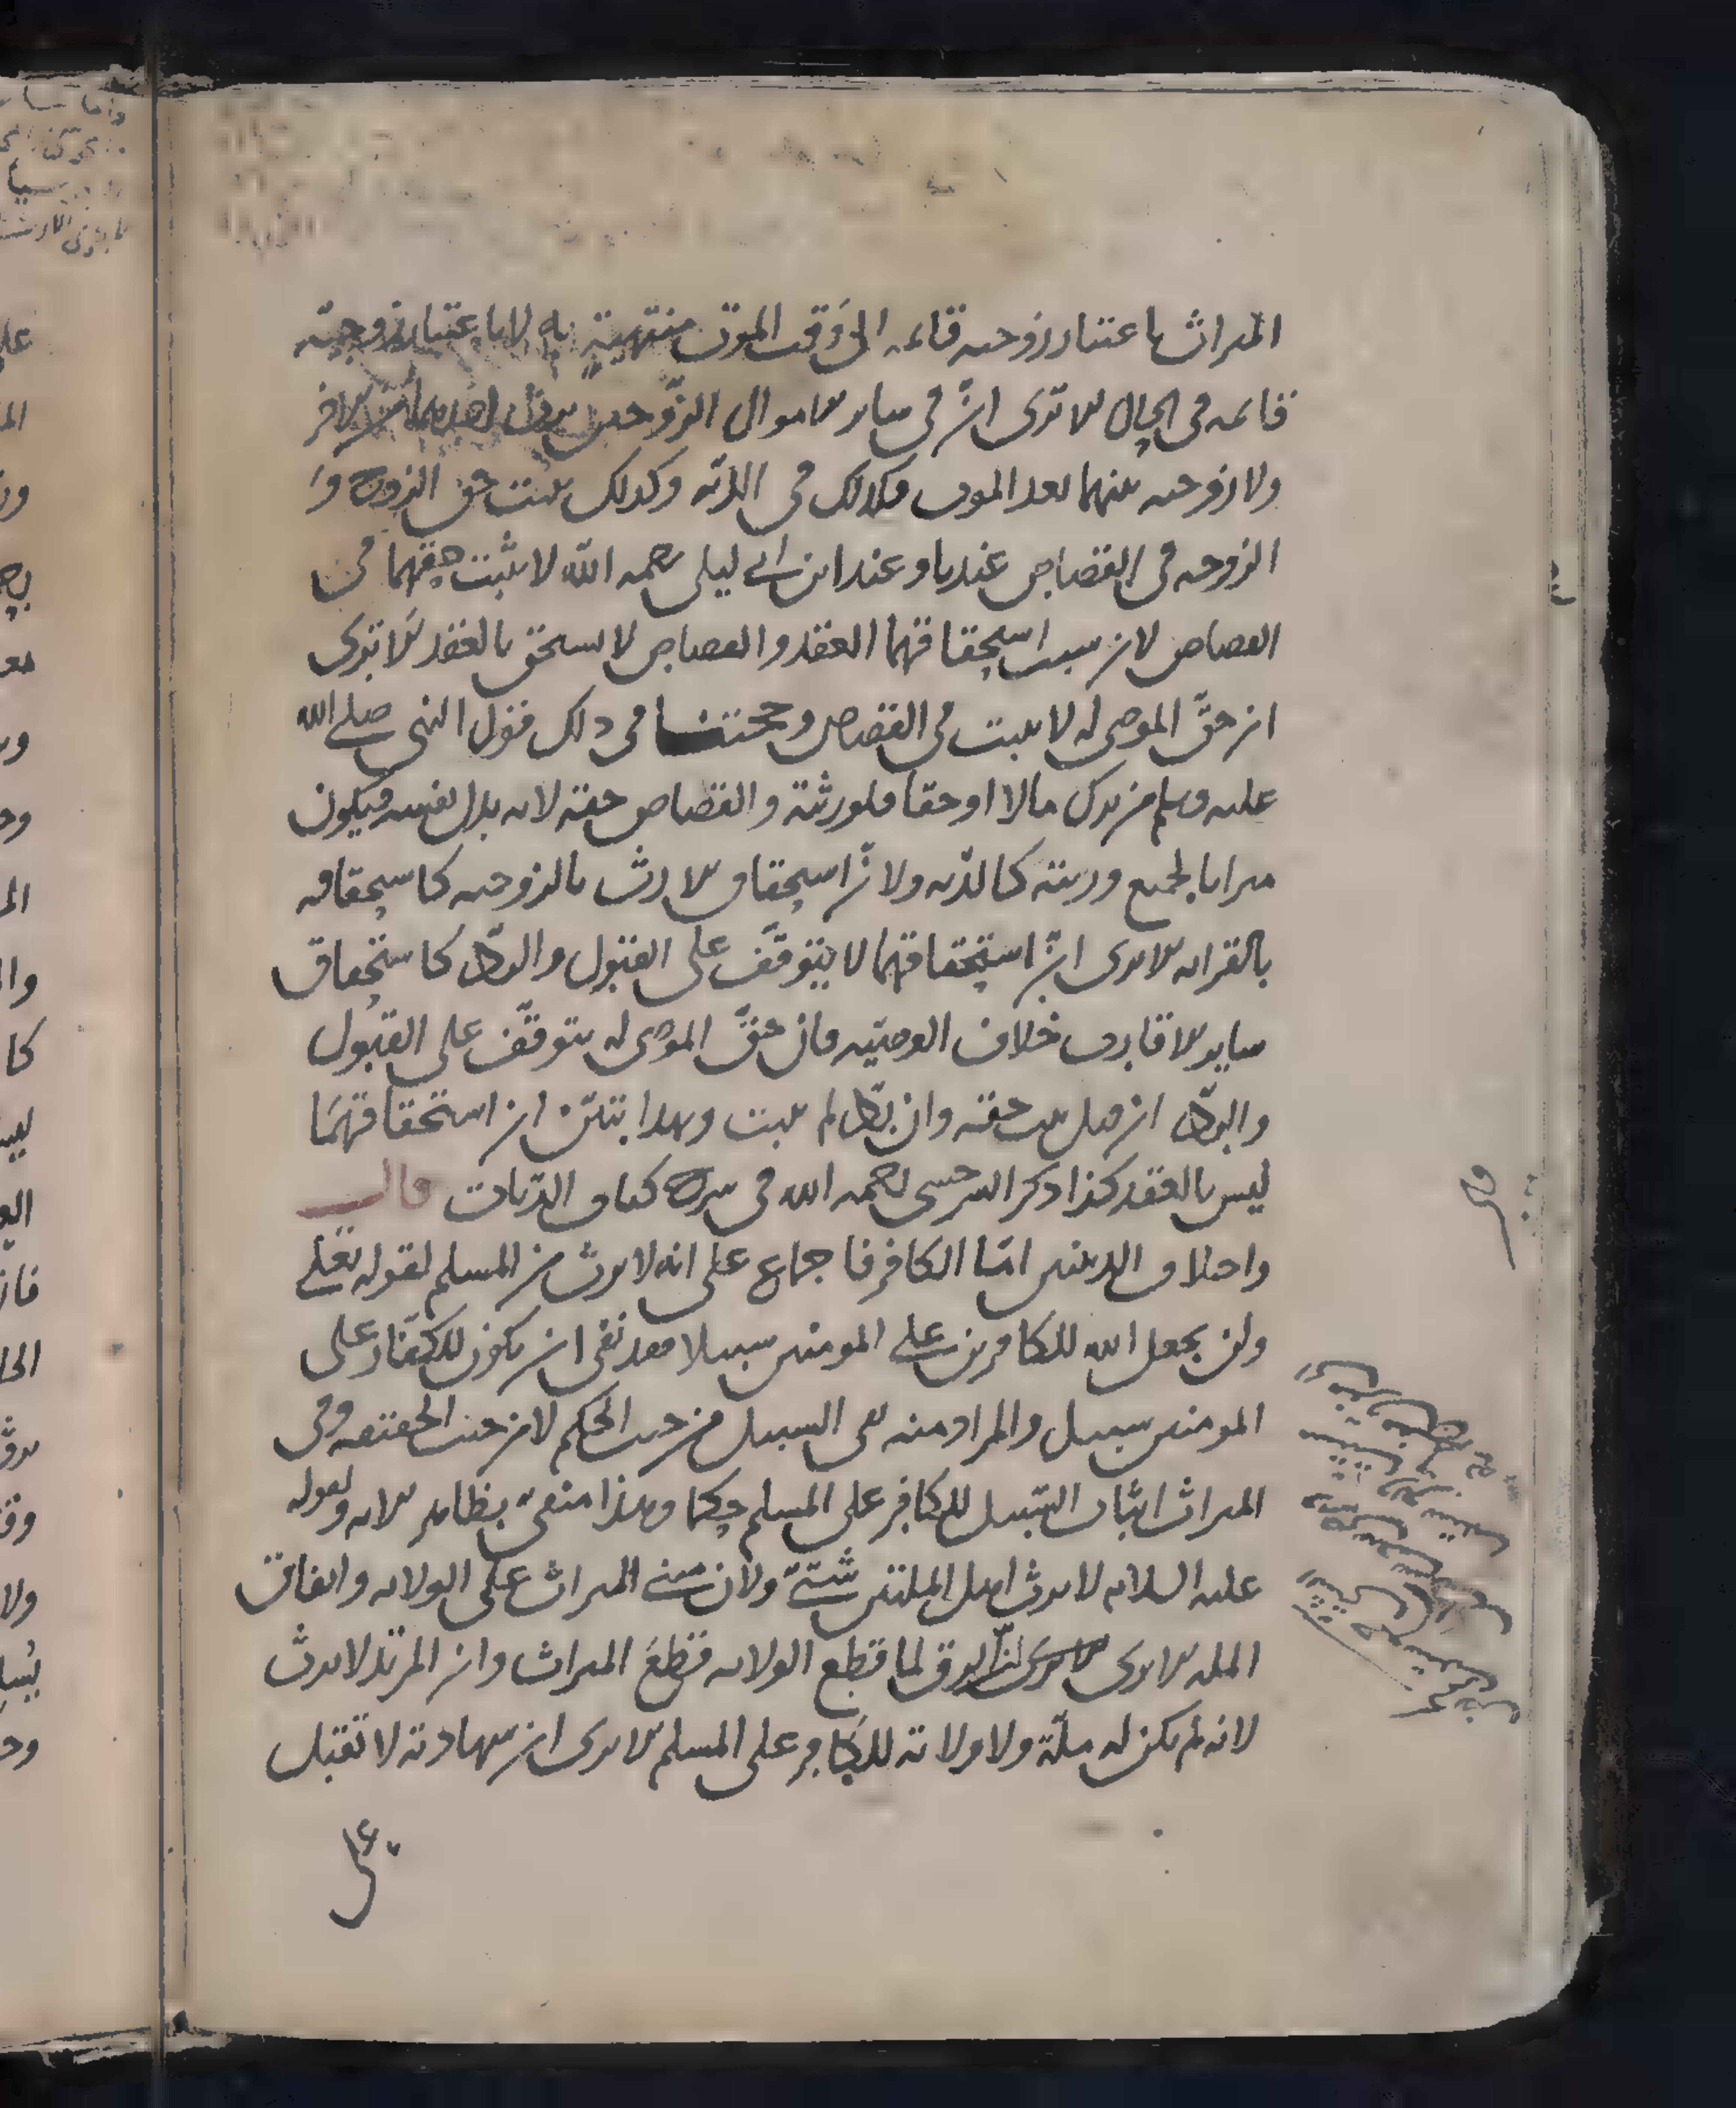 الميراث باعتبار زوجيه قائمه الى وقت الموت منتهية به لا باعتبار زوجية
قائمه في الحال الا ترى ان في ساير الاموال الزوجين يرث احدهما من الاخر
ولا زوجيه بينهما بعد الموت فكذلك في الدية وكذلك يثبت حق الزوج و
الزوجه في القصاص عندنا وعند ابن ابي ليلى رحمه الله لا يثبت حقهما في
القصاص لان سبب استحقاقهما العقد والقصاص لا يستحق بالعقد الا ترى
ان حق الموصى له لا يثبت في القصاص وحجتنا في ذلك فقول النبي صلى الله
عليه وسلم من ترك مالا او حقا فلورثته والقصاص حقه لانه بدل نفسه فيكون
ميراثا لجميع ورثته كالدية ولان استحقاق الارث بالزوجيه كاستحقاقه
بالقرابه الا ترى ان استحقاقهما لا يتوقف على القبول والرد كاستحقاق
ساير الاقارب خلاف الوصية فان حق الموصى له يتوقف على القبول
والرد ان قبل يثبت حقه وان رد لم يثبت وبهذا يتبين ان استحقاقهما
ليس بالعقد كذا ذكر السرخسي رحمه الله في شرح كتاب الديات قال
واختلاف الدينين اما الكافر فاجماع على انه لا يرث من المسلم لقوله تعالى
ولن يجعل الله للكافرين على المومنين سبيلا فقد نفى ان يكون للكفار على
المومنين سبيل والمراد منه نفي السبيل من حيث الحكم لا من حيث الحقيقه وفي
الميراث اثبات السبيل للكافر على المسلم حكما وهذا منفي بظاهر الايه ولقوله
عليه السلام لا يرث اهل الملتين شتى ولان مبنى الميراث على الولايه واتفاق
المله الا ترى ان الرق لما قطع الولايه قطع الميراث وان المرتد لا يرث
لانه لم يكن له ملة ولا ولاية للكافر على المسلم الا ترى ان شهادته لا تقبل
على